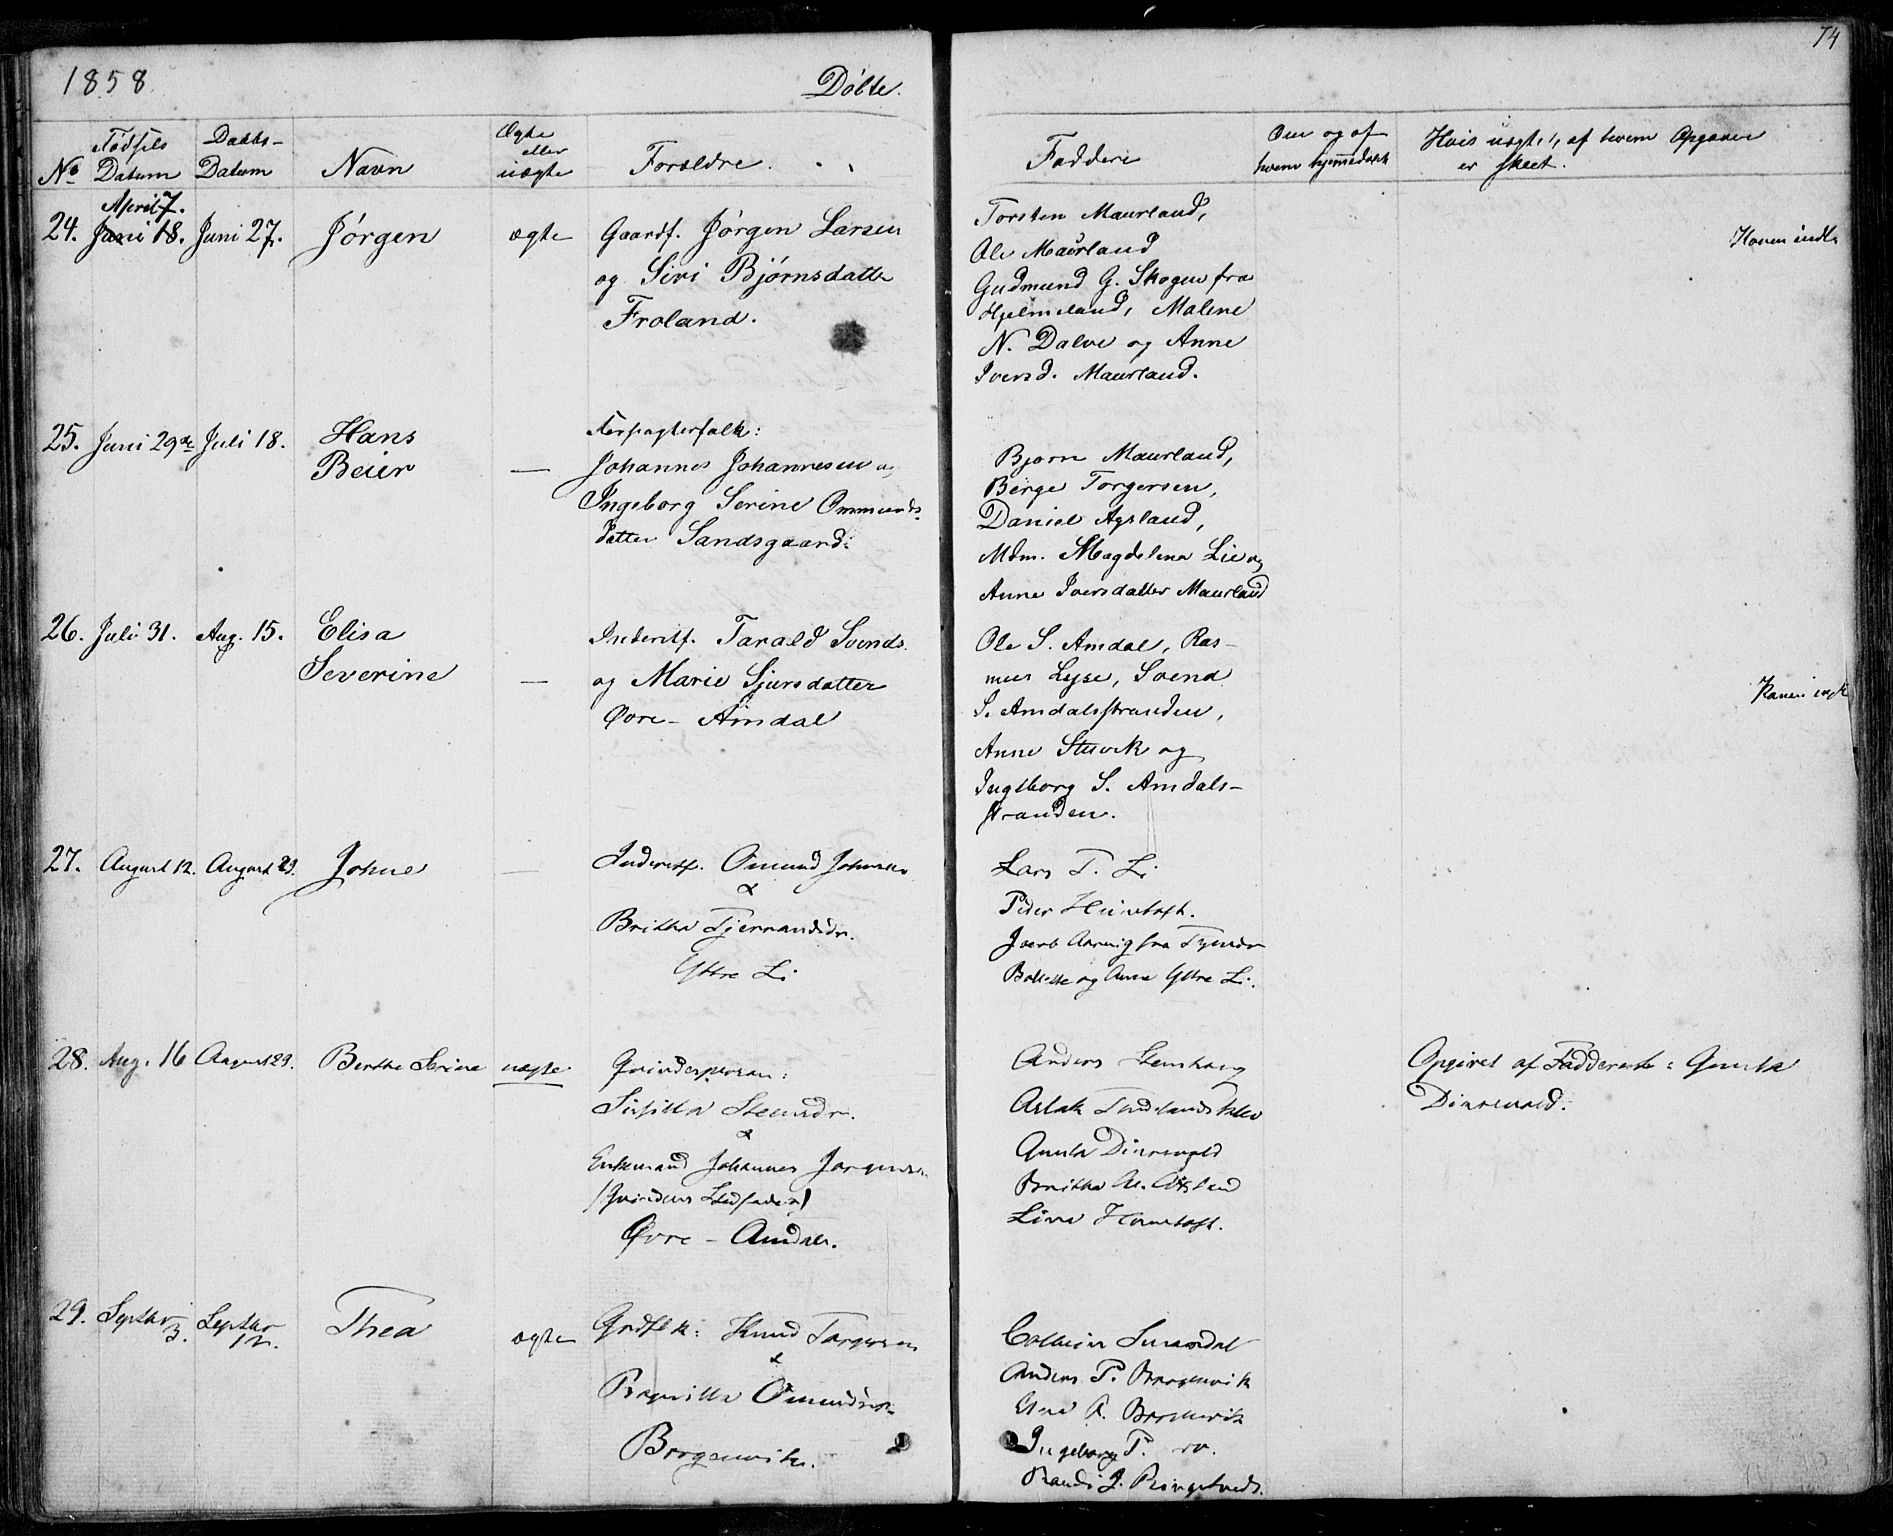 1858
Døbte.
74
No
Fødsels Datum
Daabs-Datum
Navn
Ægte eller uægte
Forældre.
Faddere
Om og af hvem hjemmedøbt
Hvis uægte, af hvem Opgaven er skeet.
24.
April 7.
Juni 18.
Juni 27.
Jørgen
ægte
Gaardf. Jørgen Larsen
og Siri Bjørnsdatter
Frøland.
Torsten Maurland,
Ole Maurland
Gudmund G. Skogen fra
Hjelmeland, Malene
N. Dalve og Anne
Iversd. Maurland.
Konen indl.
25.
Juni 29de
Juli 18.
Hans
Beier
—
Forpagterfolk:
Johannes Johannesen og
Ingeborg Serine Ommunds-
datter Sandsgaard.
Bjørn Maurland,
Berge Torgersen,
Daniel
Mdm. Magdelena Lie og
Anne Iversdatter Maurland
26.
Juli 31.
Aug. 15.
Elisa
Severine
—
Inderstf. Tarald Svends.
og Marie Sjursdatter
Øvre-Amdal
Ole S. Amdal, Ras-
mus Lyse, Svend
S. Amdalsstranden,
Anne Stuvik og
Ingeborg S. Amdals-
stranden.
Konen
27.
August 12.
August 29.
Johne
—
Inderstf. Omund Johnsen
&
Britha Tjerrandsdr.
Yttre Li
Lars T. Li
Peder
fra
og Anna Yttre Li.
28.
Aug. 16
August 29.
Berthe Serine
uægte
Qvindesperson:
Sisilla
&
Enkemand Johannes Jørgensen
(Qvindens Stedfader)
Øvre-Amdal.
Anders
Aslak
Gunla
Britha
Line
Opgivet af Fadderne: Gunla
29.
Septbr
3.
Septbr
12.
Thea
ægte
Grdfolk: Knud Torgersen
&
Omundsdr.
Borgenvik.
Anders P. Borgenvik
A. Borgenvik
Ingeborg T. do.
Randi J. Ringetveds.